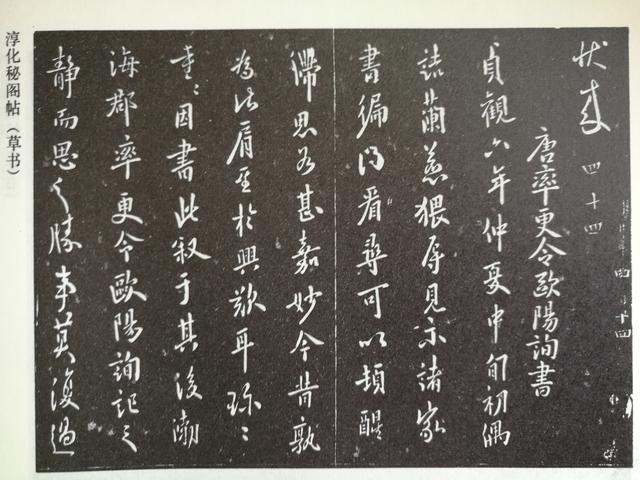 四十四
唐率更令歐陽詢書
貞觀六年仲夏中旬初偶
詣蘭惹猥辱見示諸家
書徧得看尋可以頓醒
滯思甚嘉妙今昔孰
為比肩至於興歎耳珍〻
重〻因書此叙于其後渤
海郡率更令歐陽詢記之
静而思之勝事莫復過
淳化秘阁帖（草书）